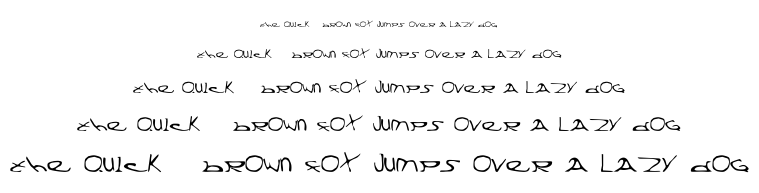 the quick brown fox jumps over a lazy dog
the quick brown fox jumps over a lazy dog
the quick brown fox jumps over a lazy dog
the quick brown fox jumps over a lazy dog
the quick brown fox jumps over a lazy dog